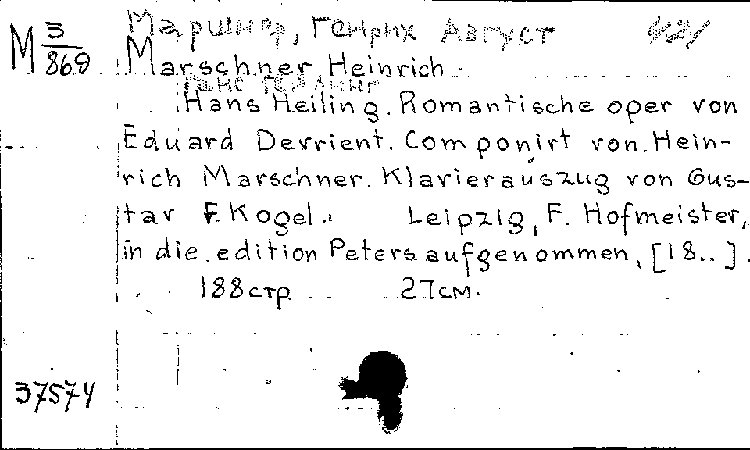 М 3/869
Маршнер, Генрих Август
Marschner Heinrich.
Ганс Гейлинг
Hans Heiling. Romantische oper von
Eduard Devrient. Componirt von Hein-
rich Marschner. Klavierauszug von Gus-
tav F. Kogel. Leipzig, F. Hofmeister,
in die edition Peters aufgenommen, [18..].
188 стр. 27 см.
37574